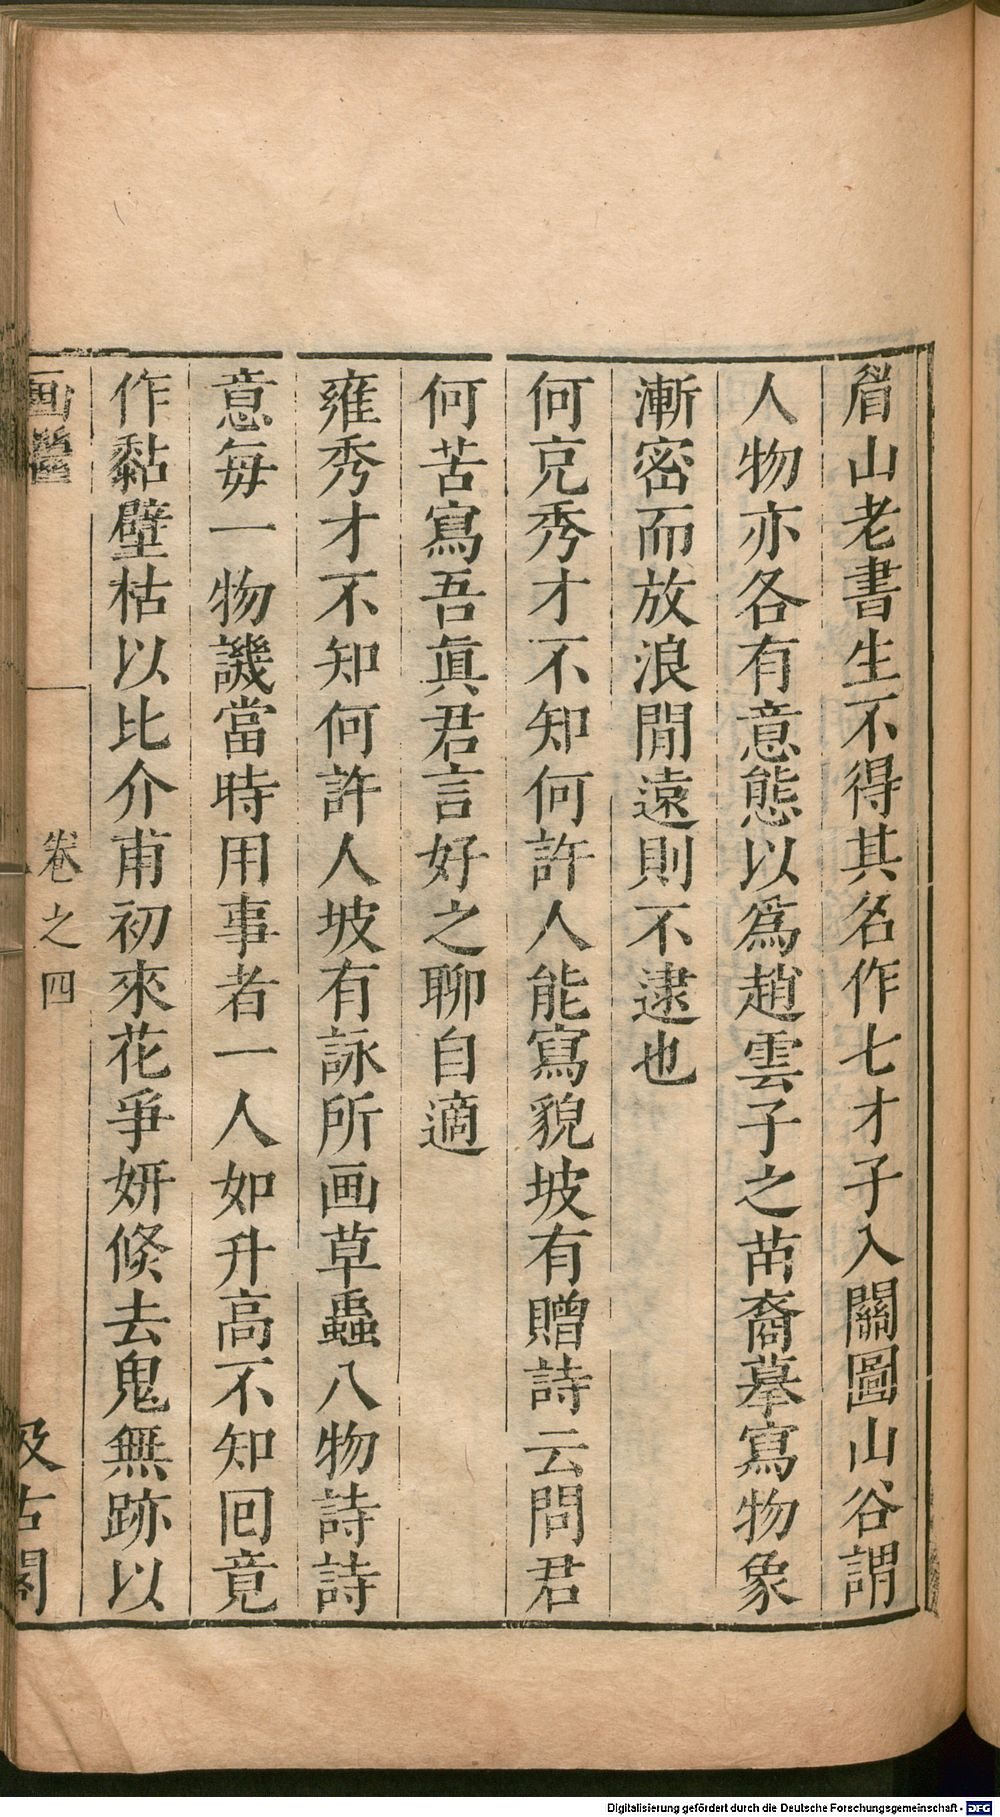 眉山老書生不得其名作七才子入關圖山谷謂
人物亦各有意態以爲趙雲子之苗裔摹寫物象
漸密而放浪閒遠則不逮也
何克秀才不知何許人能寫貌坡有贈詩云問君
何苦寫吾眞君言好之聊自適
雍秀才不知何許人坡有詠所画草蟲八物詩詩
意毎一物譏當時用事者一人如升高不知回竟
作黏壁枯以比介甫初來花爭妍倏去鬼無跡以
画繼
卷之四
汲古閣
Digitalisierung gefördert durch die Deutsche Forschungsgemeinschaft - DFG